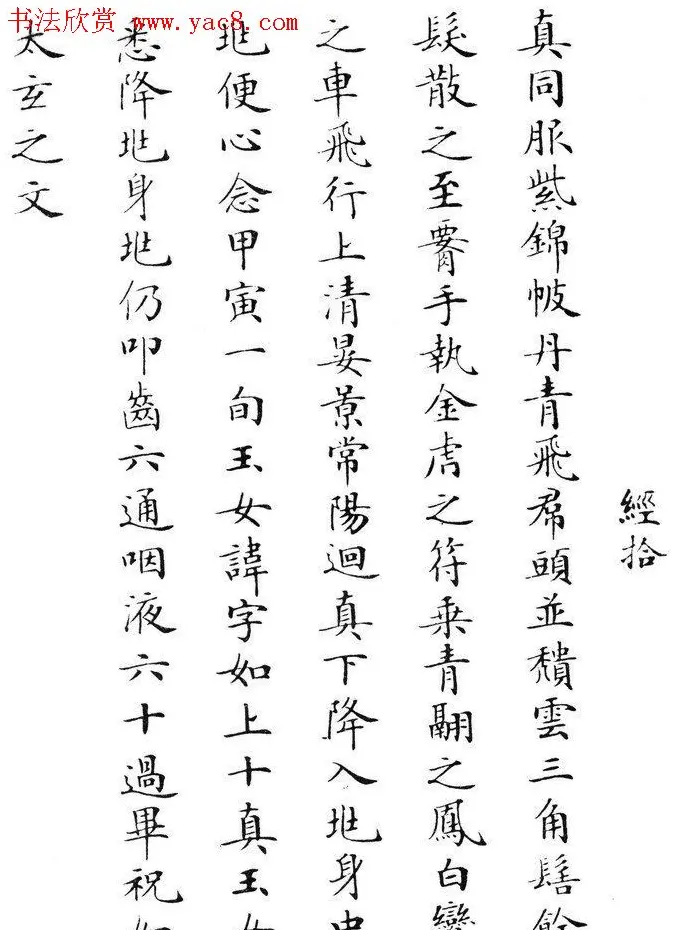 书法欣赏 www.yac8.com
經拾
真同服紫錦帔丹青飛帬頭並頹雲三角髻餘
髮散之至腰手執金虎之符乗青翮之鳳白鸞
之車飛行上清晏景常陽迴真下降入兆身中
兆便心念甲寅一旬玉女諱字如上十真玉女
悉降兆身兆仍叩齒六通咽液六十過畢祝如
太玄之文